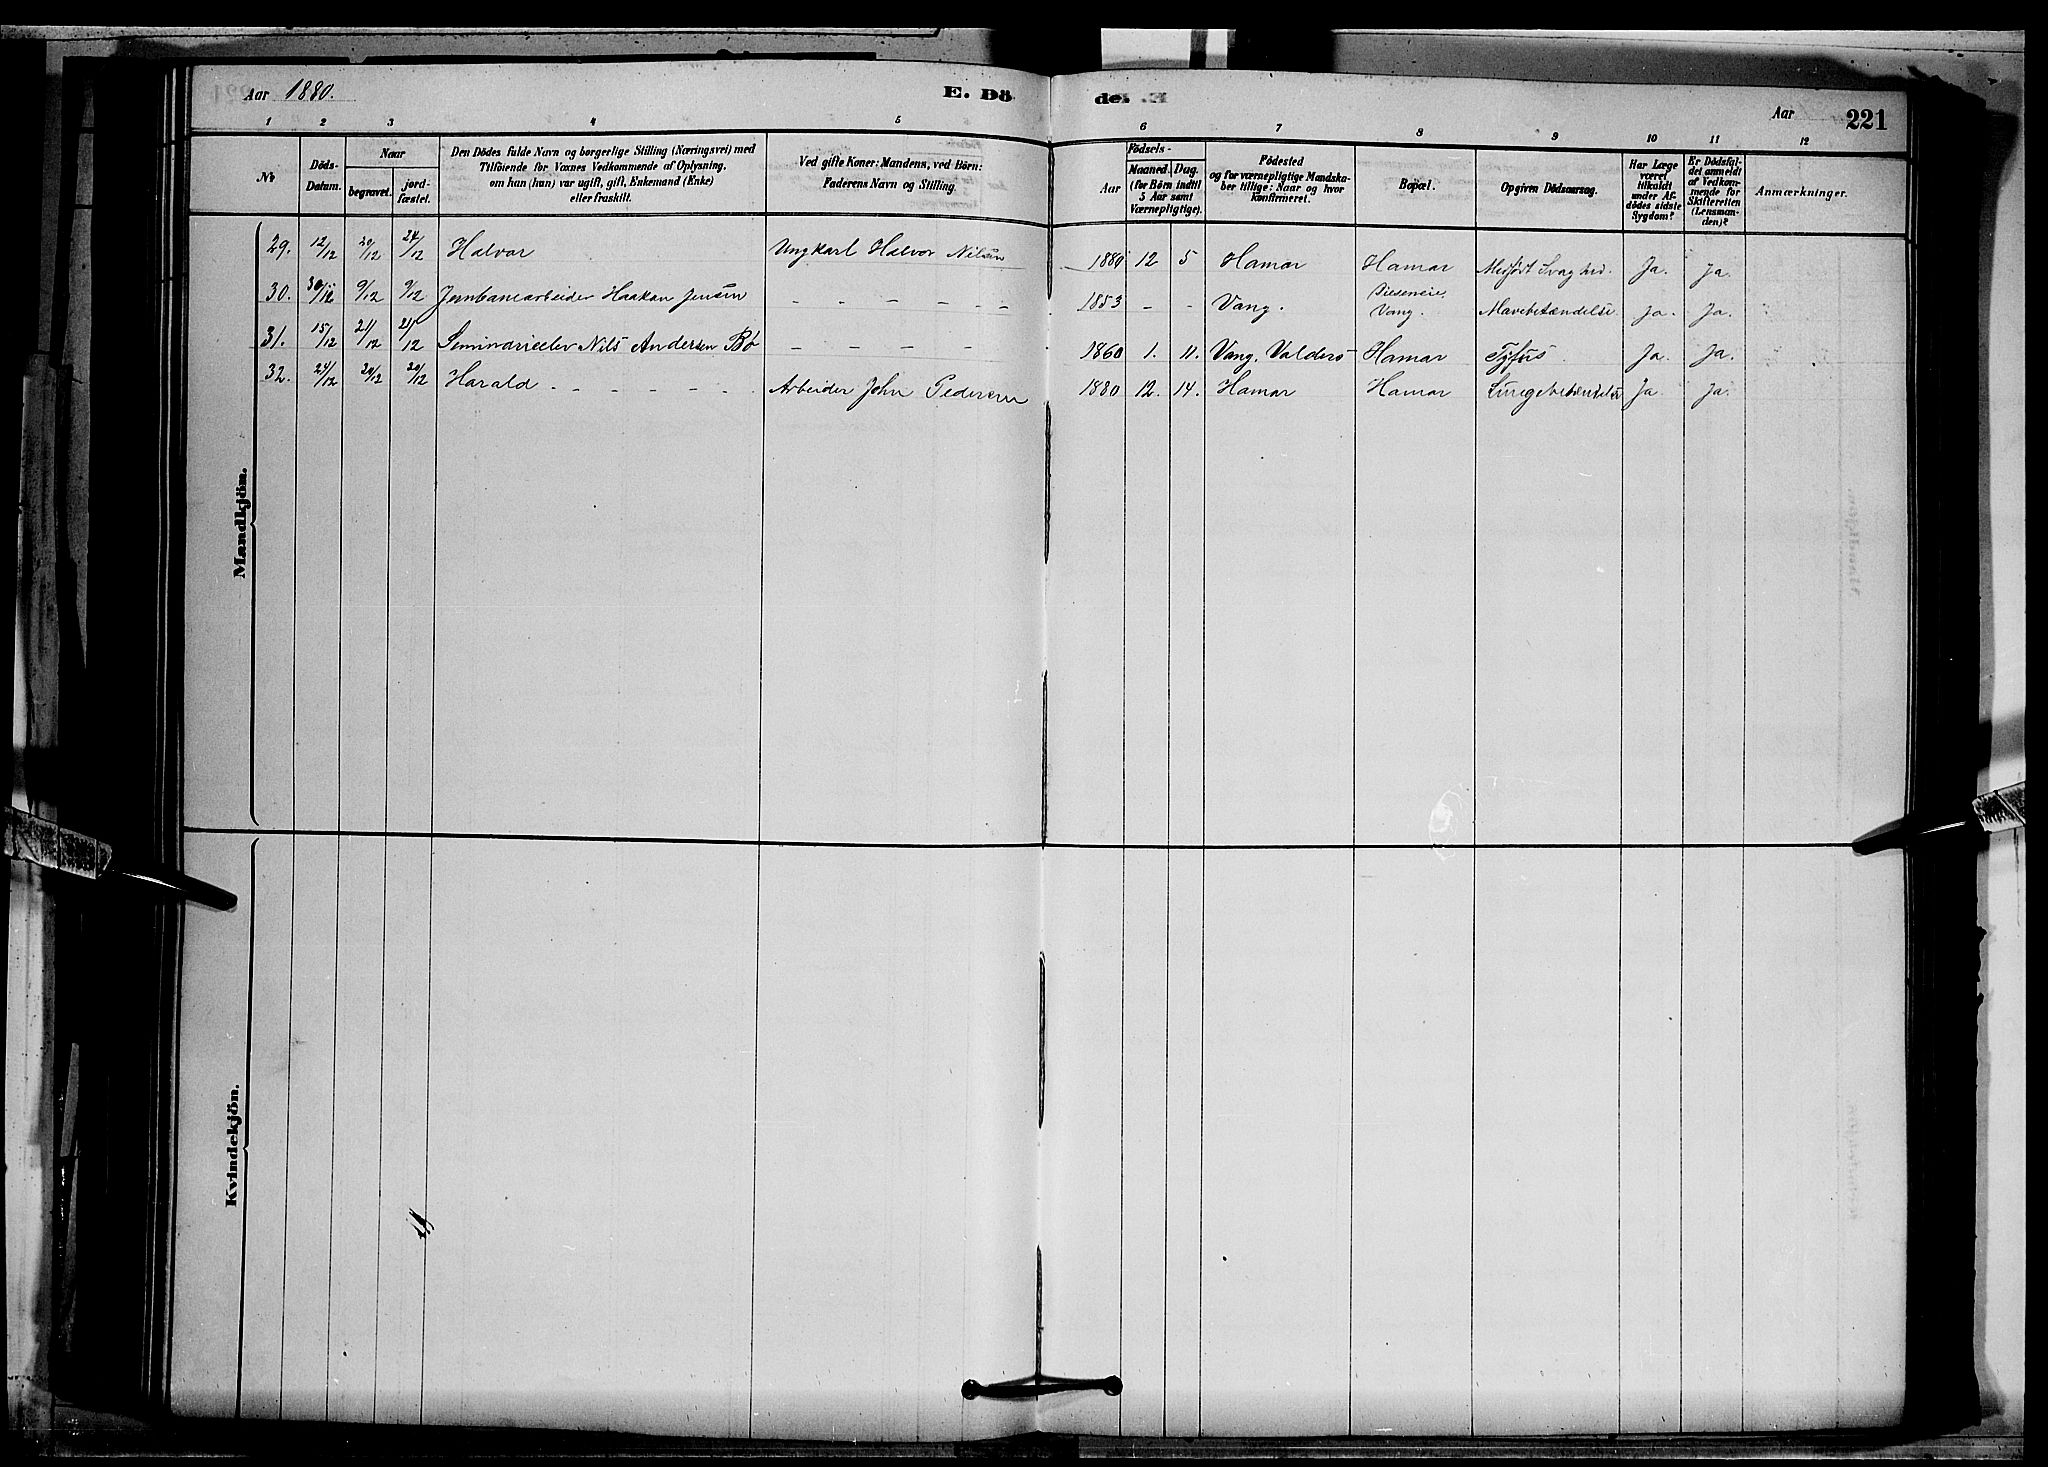 Aar 1880. E. Dö de. Aar 221
1 2 3 4 5 6 7 8 9 10 11 12
No
Döds-Datum.
Naar
begravet.
jordfæstet.
Den Dödes fulde Navn og borgerlige Stilling (Næringsvei) med
Tilföiende for Voxnes Vedkommende af Oplysning,
om han (hun) var ugift, gift, Enkemand (Enke)
eller fraskilt.
Ved gifte Koner: Mandens, ved Börn:
Faderens Navn og Stilling.
Födsels-
Aar
Maaned. Dag.
(for Börn indtil
5 Aar samt
Værnepligtige).
Födested
og for værnepligtige Mandskaber tillige: Naar og hvor
konfirmeret.
Bopæl.
Opgiven Dödsaarsag.
Har Læge
været
tilkaldt
under Afdödes sidste
Sygdom?
Er Dödsfaldet anmeldt
af Vedkommende for
Skifteretten
(Lensmanden)?
Anmærkninger.
Mandkjön.
29. 12/12 20/12 24/12 Halvor Ungkarl Halvor Nilsen 1880 12 5 Hamar Hamar Medfødt Svaghed. Ja. Ja.
30. 30/12 9/12 9/12 Jernbanearbeider Haakan Jensen - - - - - - 1853 - - Vang. Vang. Mavebetændelse Ja. Ja.
31. 15/12 21/12 21/12 Seminarieelev Nils Andersen Bø - - - - 1860 1. 11. Vang, Valders Hamar Tyfus. Ja. Ja.
32. 24/12 30/12 Harald - - - - - Arbeider John Pedersen 1880 12. 14. Hamar Hamar Lungebetændelse Ja. Ja.
Kvindekjön.